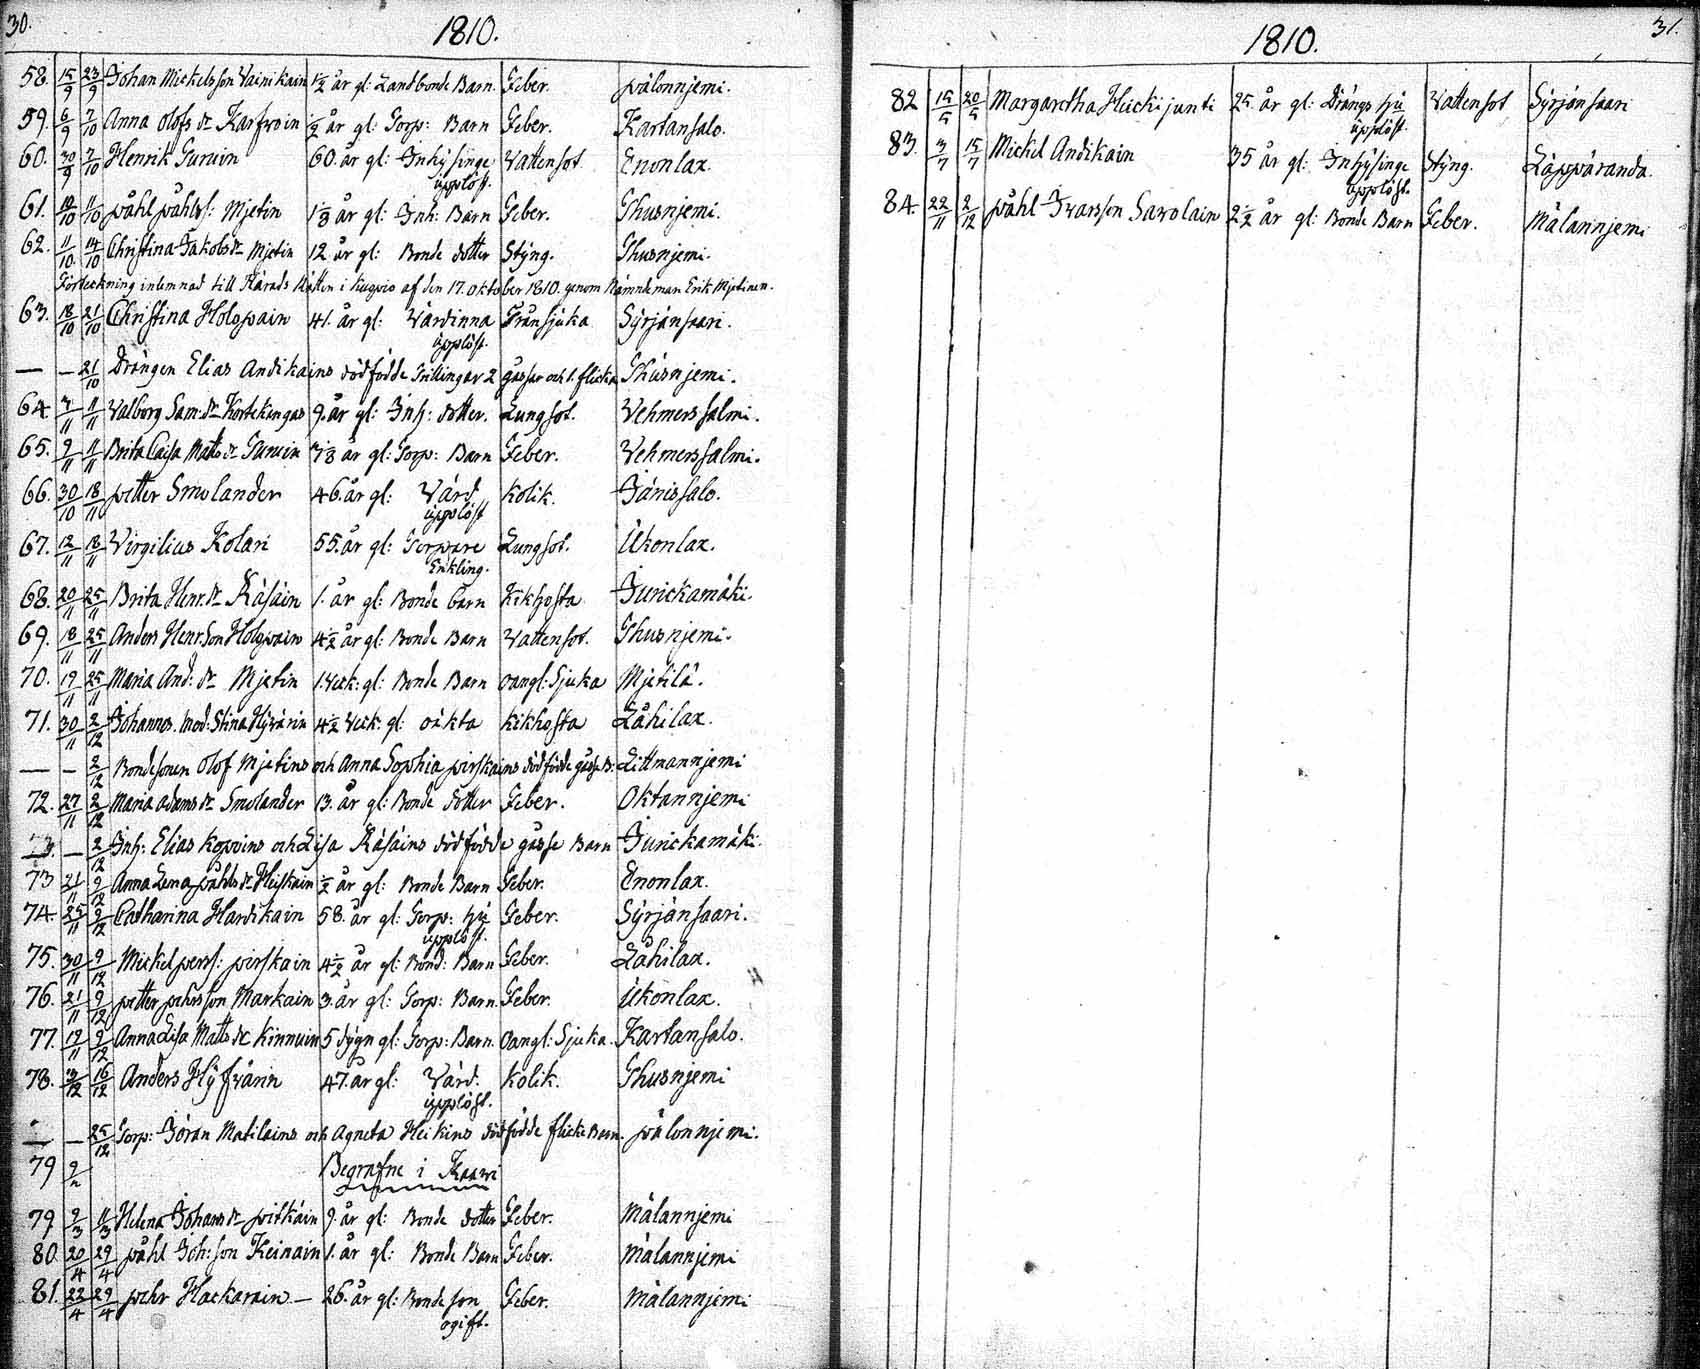 30.
1810.
58. 15/9 23/9 Johan Mickelsson Vainikain 1/2 år gl: Landbonde Barn. Feber. pålonnjemi.
59. 6/9 7/10 Anna Olofs dr Karfwoin 1/2 år gl: Torp: Barn Feber. Kartansalo.
60. 30/9 7/10 Henrik Turuin 60. år gl: Inhysinge Vattensot Enonlax.
upplöst.
61. 10/10 11/10 påhl påhlss: Mjetin 1/8 år gl: Inh: Barn Feber. Thusnjemi.
62. 11/10 14/10 Christina Jakobs dr Mjetin 12 år gl: Bonde dotter Styng. Thusnjemi.
Förteckning inlemnad till Härads Rätten i Kuopio af den 17. oktober 1810. genom Nämndeman Erik Mjetinen.
63. 18/10 21/10 Christina Holopain 41. år gl: Värdinna Trånsjuka Syrjänsaari.
upplöst.
— — 21/10 Drängen Elias Andikains dödfödde Trillingar 2 gåssar och 1. flicka Thusnjemi.
64. 7/11 11/11 Valborg Sam: dr Kortekangas 9. år gl: Inh: dotter. Lungsot. Vehmerssalmi.
65. 9/11 11/11 Brita Caisa Matts dr Turuin 7/8 år gl: Torp: Barn Feber. Vehmerssalmi.
66. 30/10 18/11 petter Smolander 46. år gl: Värd Kolik. Jänissalo.
upplöst
67. 12/11 18/11 Virgilius Kolari 55. år gl: Torpare Lungsot. Ukonlax.
Enkling.
68. 20/11 25/11 Brita Henr. dr Räsäin 1. år gl: Bonde barn Kikhosta Jurickamäki.
69. 18/11 25/11 Anders Henr. Son Holopain 4 1/2 år gl: Bonde Barn Vattensot. Thusnjemi.
70. 19/11 25/11 Maria And: dr Mjetin 1. Veck: gl: Bonde Barn oangl: Sjuka Mjetilä.
71. 30/11 2/12 Johannes. mod: Stina Hyvärin 4 1/2 Veck. gl: oäkta Kikhosta Låhilax.
— — 2/12 Bondesonen Olof Mjetins och Anna Sophia pirskains dödfödde gåsse B: Littmannjemi
72. 27/11 2/12 Maria Adams dr Smolander 13. år gl: Bonde dotter Feber. Oktannjemi
— — 2/12 Inh: Elias Kopoins och Lisa Räsäins dödfödde gåsse Barn Jurickamäki.
73 21/11 9/12 Anna Lena påhls dr Heiskain 1/2 år gl: Bonde Barn Feber. Enonlax.
74. 25/11 9/12 Catharina Hardikain 58. år gl: Torp: hu Feber. Syrjänsaari.
upplöst.
75. 30/11 9/12 Mickel perss: pirskain 4 1/2 år gl: Bond: Barn Feber. Låhilax.
76. 21/11 9/12 petter pehrsson Markain 3. år gl: Torp: Barn. Feber. Ukonlax.
77. 19/11 9/12 Anna Lisa Matts dr Kinnuin 5 dygn gl: Torp: Barn. oangl: Sjuka. Kartansalo.
78. 3/12 16/12 Anders Hyfvärin 47. år gl: Värd. Kolik. Thusnjemi
upplöst.
— — 25/12 Torp: Jöran Matilains och Agneta Heikins dödfödde flicke Barn. pålonnjemi.
79 9/2 Begrafne i Kaawi
79 9/3 11/3 Helena Johans dr pitkäin 9. år gl: Bonde dotter Feber. Målannjemi
80. 20/4 29/4 påhl Joh: son Keinain 1. år gl: Bonde Barn Feber. Målannjemi
81. 22/4 29/4 pehr Hackarain — 26. år gl: Bonde son Feber. Målannjemi
ogift.
31.
1810.
82 15/5 20/5 Margaretha Heickijunti 25. år gl: Drängs hu Vattensot Syrjänsaari
upplöst.
83. 3/7 15/7 Mickel Andikain 35 år gl: Inhysinge Styng. Läppäranda.
upplöst.
84. 22/11 2/12 påhl Ivarsson Savolain 2 1/2 år gl: Bonde Barn Feber. Målannjemi